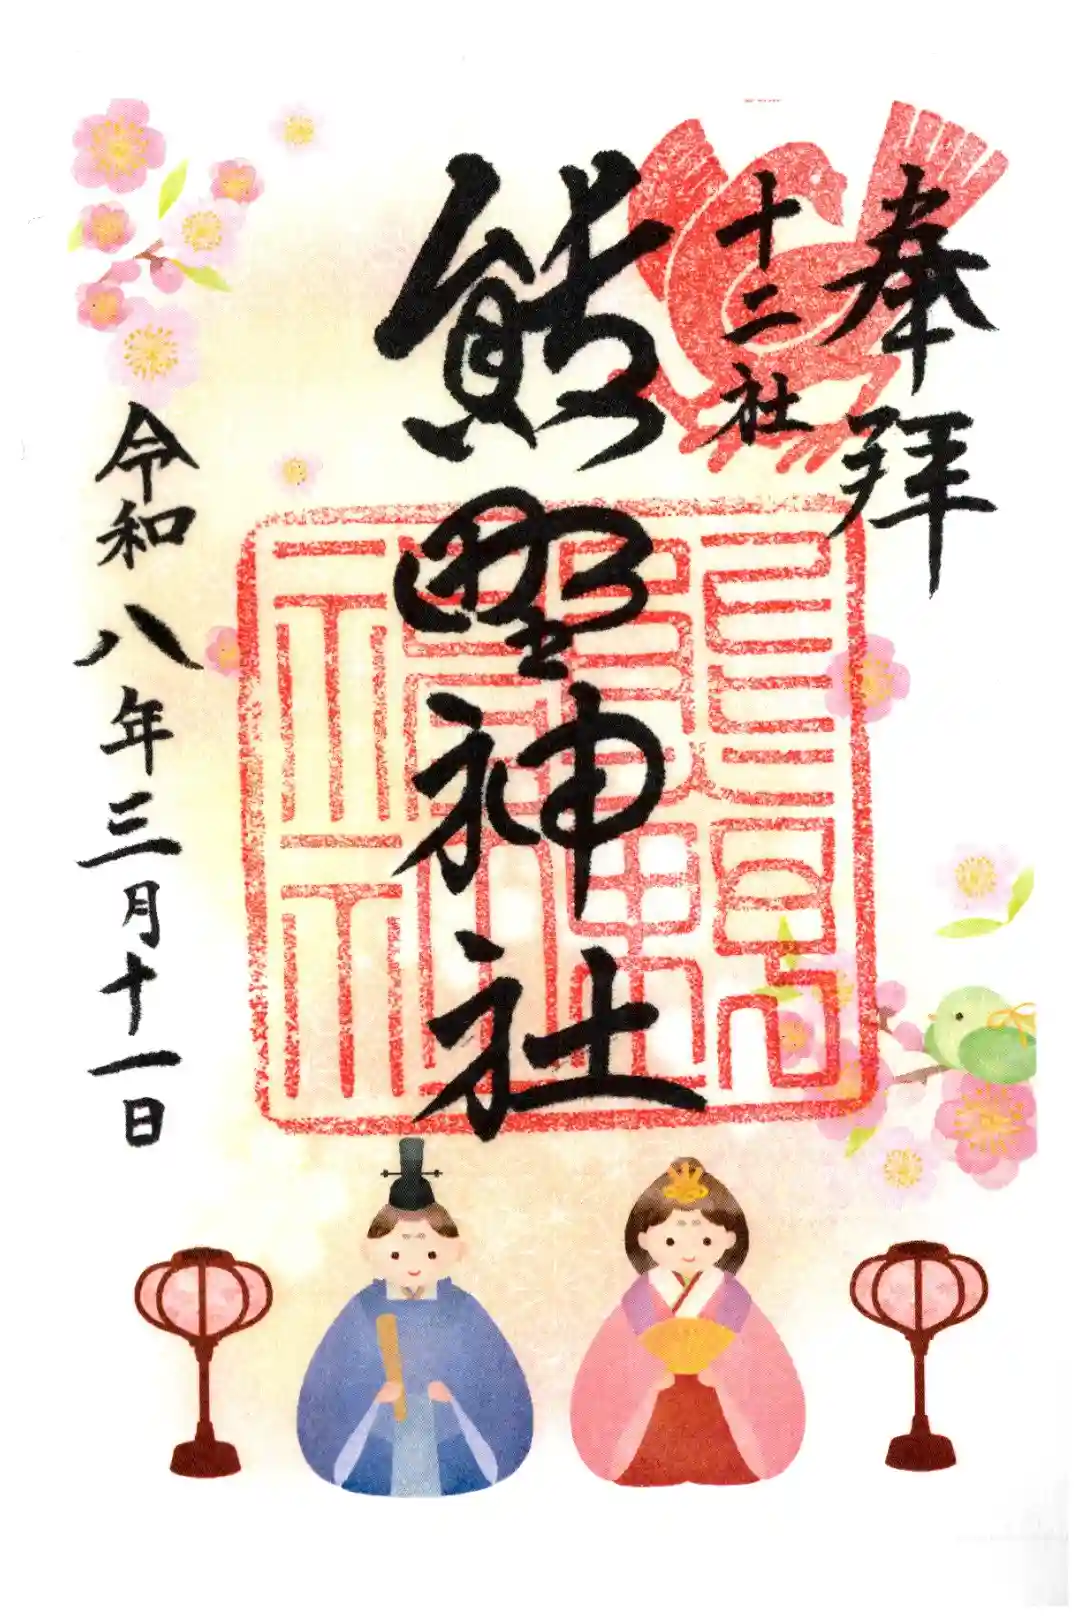 奉拝
十二社
熊野神社
令和八年三月十一日